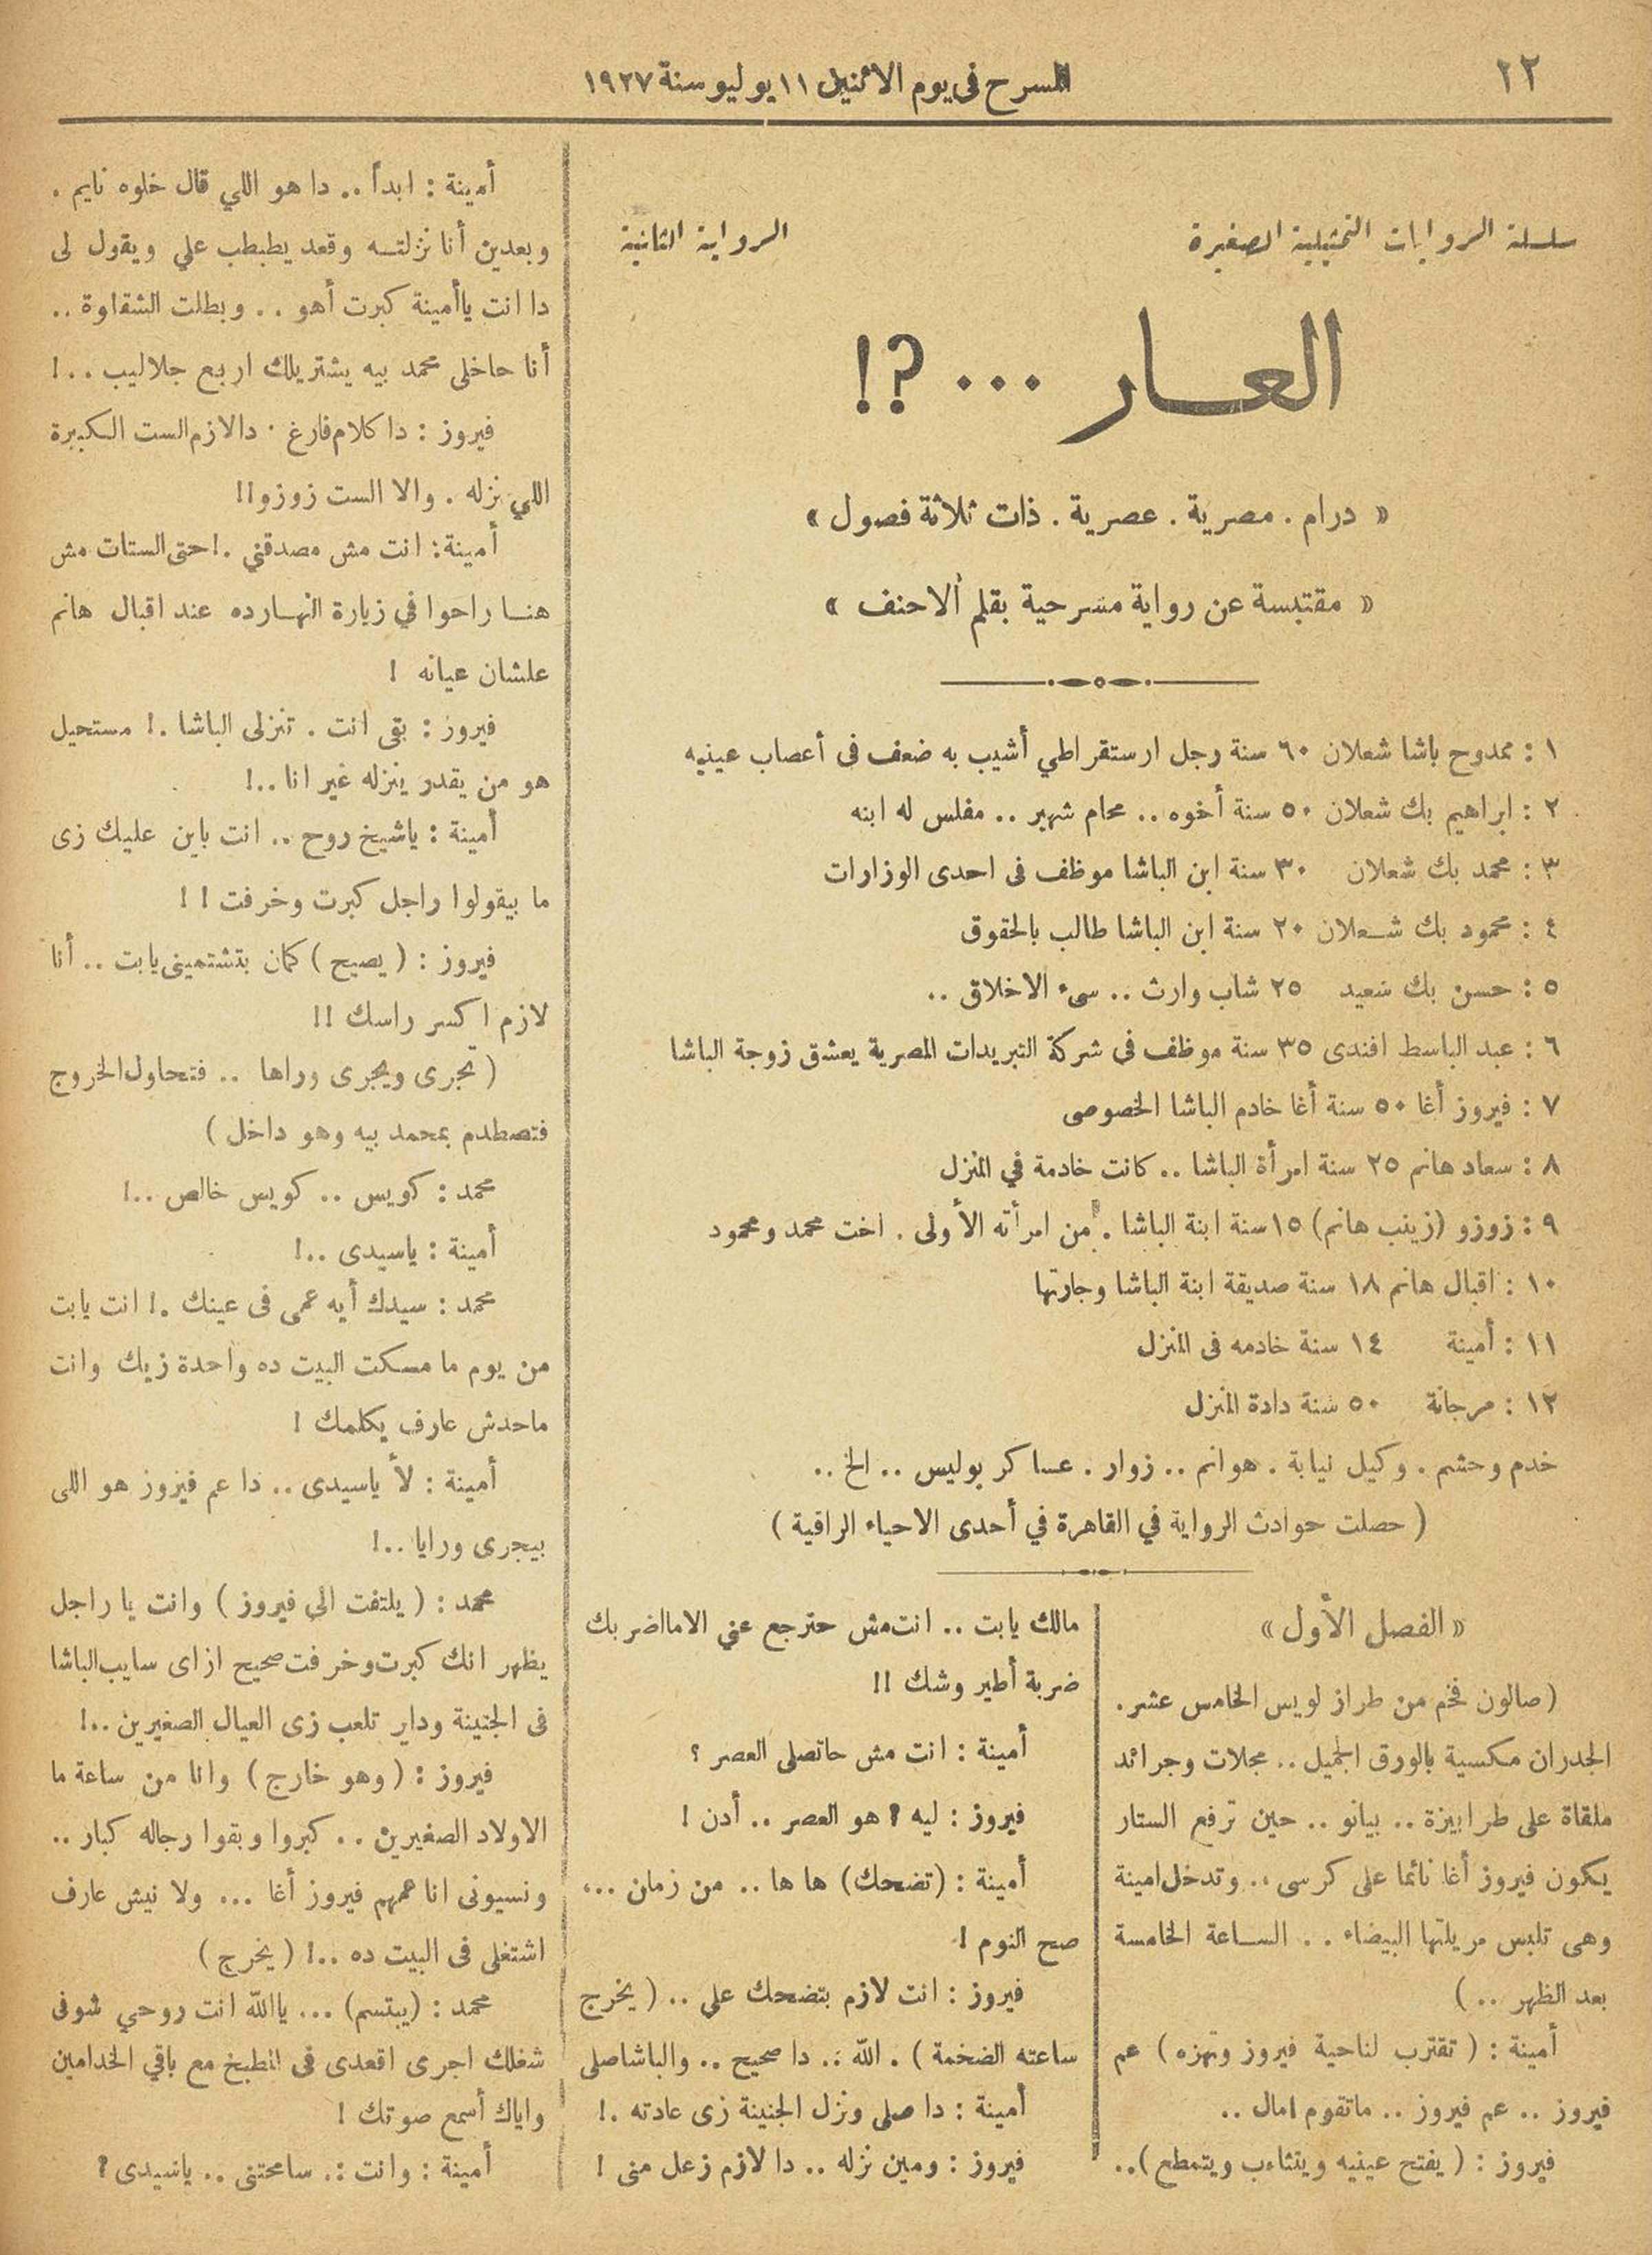 ٢٢
المسرح فى يوم الاثنين ١١ يوليو سنة ١٩٢٧
سلسلة الروايات التمثيلية الصغيرة
الرواية الثانية
العار ... ؟!
« درام . مصرية . عصرية . ذات ثلاثة فصول »
« مقتبسة عن رواية مسرحية بقلم ألاحنف »
١ : ممدوح باشا شعلان ٦٠ سنة رجل ارستقراطي أشيب به ضعف فى أعصاب عينيه
٢ : ابراهيم بك شعلان ٥٠ سنة أخوه .. محام شهير .. مفلس له ابنه
٣ : محمد بك شعلان ٣٠ سنة ابن الباشا موظف فى احدى الوزارات
٤ : محمود بك شعلان ٢٠ سنة ابن الباشا طالب بالحقوق
٥ : حسن بك سعيد ٢٥ شاب وارث .. سىء الاخلاق ..
٦ : عبد الباسط افندى ٣٥ سنة موظف فى شركة التبريدات المصرية يعشق زوجة الباشا
٧ : فيروز أغا ٥٠ سنة أغا خادم الباشا الخصوصى
٨ : سعاد هانم ٢٥ سنة امرأة الباشا .. كانت خادمة في المنزل
٩ : زوزو (زينب هانم) ١٥ سنة ابنة الباشا . من امرأته الأولى . اخت محمد ومحمود
١٠ : اقبال هانم ١٨ سنة صديقة ابنة الباشا وجارتها
١١ : أمينة ١٤ سنة خادمه فى المنزل
١٢ : مرجانة ٥٠ سنة دادة المنزل
خدم وحشم . وكيل نيابة . هوانم .. زوار . عساكر بوليس .. الخ ..
( حصلت حوادث الرواية في القاهرة في أحدى الاحياء الراقية )
« الفصل الأول »
(صالون فخم من طراز لويس الخامس عشر .
الجدران مكسية بالورق الجميل .. مجلات وجرائد
ملقاة على طرابيزة .. بيانو .. حين ترفع الستار
يكون فيروز أغا نائما على كرسى .. وتدخل امينة
وهى تلبس مريلتها البيضاء .. الساعة الخامسة
بعد الظهر .. )
أمينة : ( تقترب لناحية فيروز وتهزه ) عم
فيروز .. عم فيروز .. ماتقوم امال ..
فيروز : ( يفتح عينيه ويتثاءب ويتمطع ) ..
مالك يابت .. انت مش حترجع عني الا مااضربك
ضربة أطير وشك !!
أمينة : انت مش حاتصلى العصر ؟
فيروز : ليه ؟ هو العصر .. أدن !
أمينة : (تضحك) ها ها .. من زمان ...
صح النوم !
فيروز : انت لازم بتضحك على .. ( يخرج
ساعته الضخمة ) . الله .. دا صحيح .. والباشا صلى
أمينة : دا صلى ونزل الجنينة زى عادته .!
فيروز : ومين نزله .. دا لازم زعل منى !
أمينة : ابدأ .. دا هو اللي قال خلوه نايم .
وبعدين أنا نزلته وقعد يطبطب علي ويقول لى
دا انت ياأمينة كبرت أهو .. وبطلت الشقاوة ..
أنا حاخلى محمد بيه يشتريلك اربع جلاليب .. !
فيروز : دا كلام فارغ . دا لازم الست الكبيرة
اللي نزله . والا الست زوزو!!
أمينة : انت مش مصدقني .! حتى الستات مش
هنا راحوا في زيارة النهارده عند اقبال هانم
علشان عيانه !
فيروز : بقى انت . تنزلى الباشا .! مستحيل
هو من يقدر ينزله غير انا ..!
أمينة : ياشيخ روح .. انت باين عليك زى
ما بيقولوا راجل كبرت وخرفت !!
فيروز : ( يصيح ) كمان بتشتمينى يابت .. أنا
لازم اكسر راسك !!
( تجرى ويجرى وراها .. فتحاول الخروج
فتصطدم بمحمد بيه وهو داخل )
محمد : كويس .. كويس خالص ..!
أمينة : ياسيدى ..!
محمد : سيدك أيه عمى فى عينك .! انت يابت
من يوم ما مسكت البيت ده واحدة زيك وانت
ماحدش عارف يكلمك !
أمينة : لأ ياسيدى .. دا عم فيزوز هو اللى
بيجرى ورايا ..!
محمد : ( يلتفت الى فيروز ) وانت يا راجل
يظهر انك كبرت وخرفت صحيح ازاى سايب الباشا
فى الجنينة وداير تلعب زى العيال الصغيرين ..!
فيروز : ( وهو خارج ) وانا من ساعة ما
الاولاد الصغيرين .. كبروا وبقوا رجاله كبار ..
ونسيونى انا عمهم فيروز أغا ... ولا نيش عارف
اشتغلى فى البيت ده ..! ( يخرج )
محمد : (يبتسم) ... ياالله انت روحي شوفى
شغلك اجرى اقعدى فى المطبخ مع باقي الخدامين
واياك أسمع صوتك !
أمينة : وانت .. سامحتنى .. ياسيدى ؟